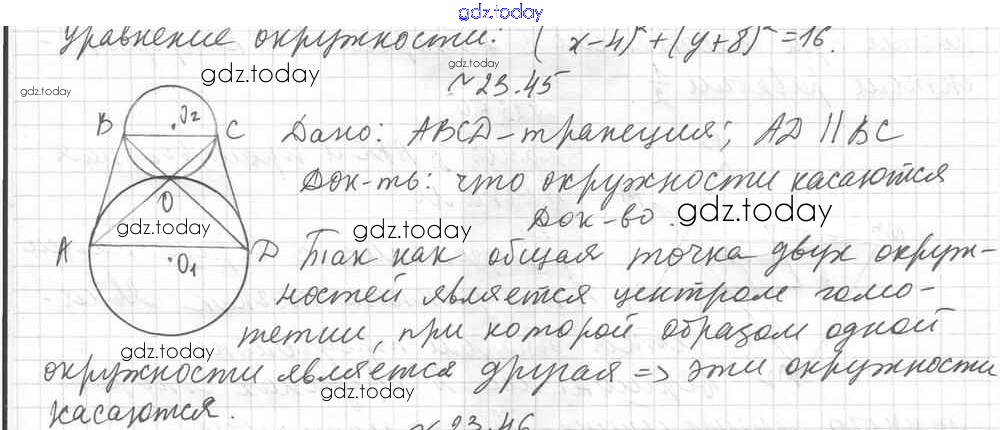 gdz.today
уравнение окружности: (x-4)² + (y+8)² = 16.
gdz.today
gdz.today
№ 23.45
O₂
B C Дано: ABCD - трапеция; AD || BC
Док-ть: что окружности касаются
O
Док-во. gdz.today
gdz.today
gdz.today
A D Так как общая точка двух окруж-
O₁
ностей является центром гомо-
тетии, при которой образом одной
gdz.today
окружности является другая => эти окружности
gdz.today
касаются.
№ 23.46